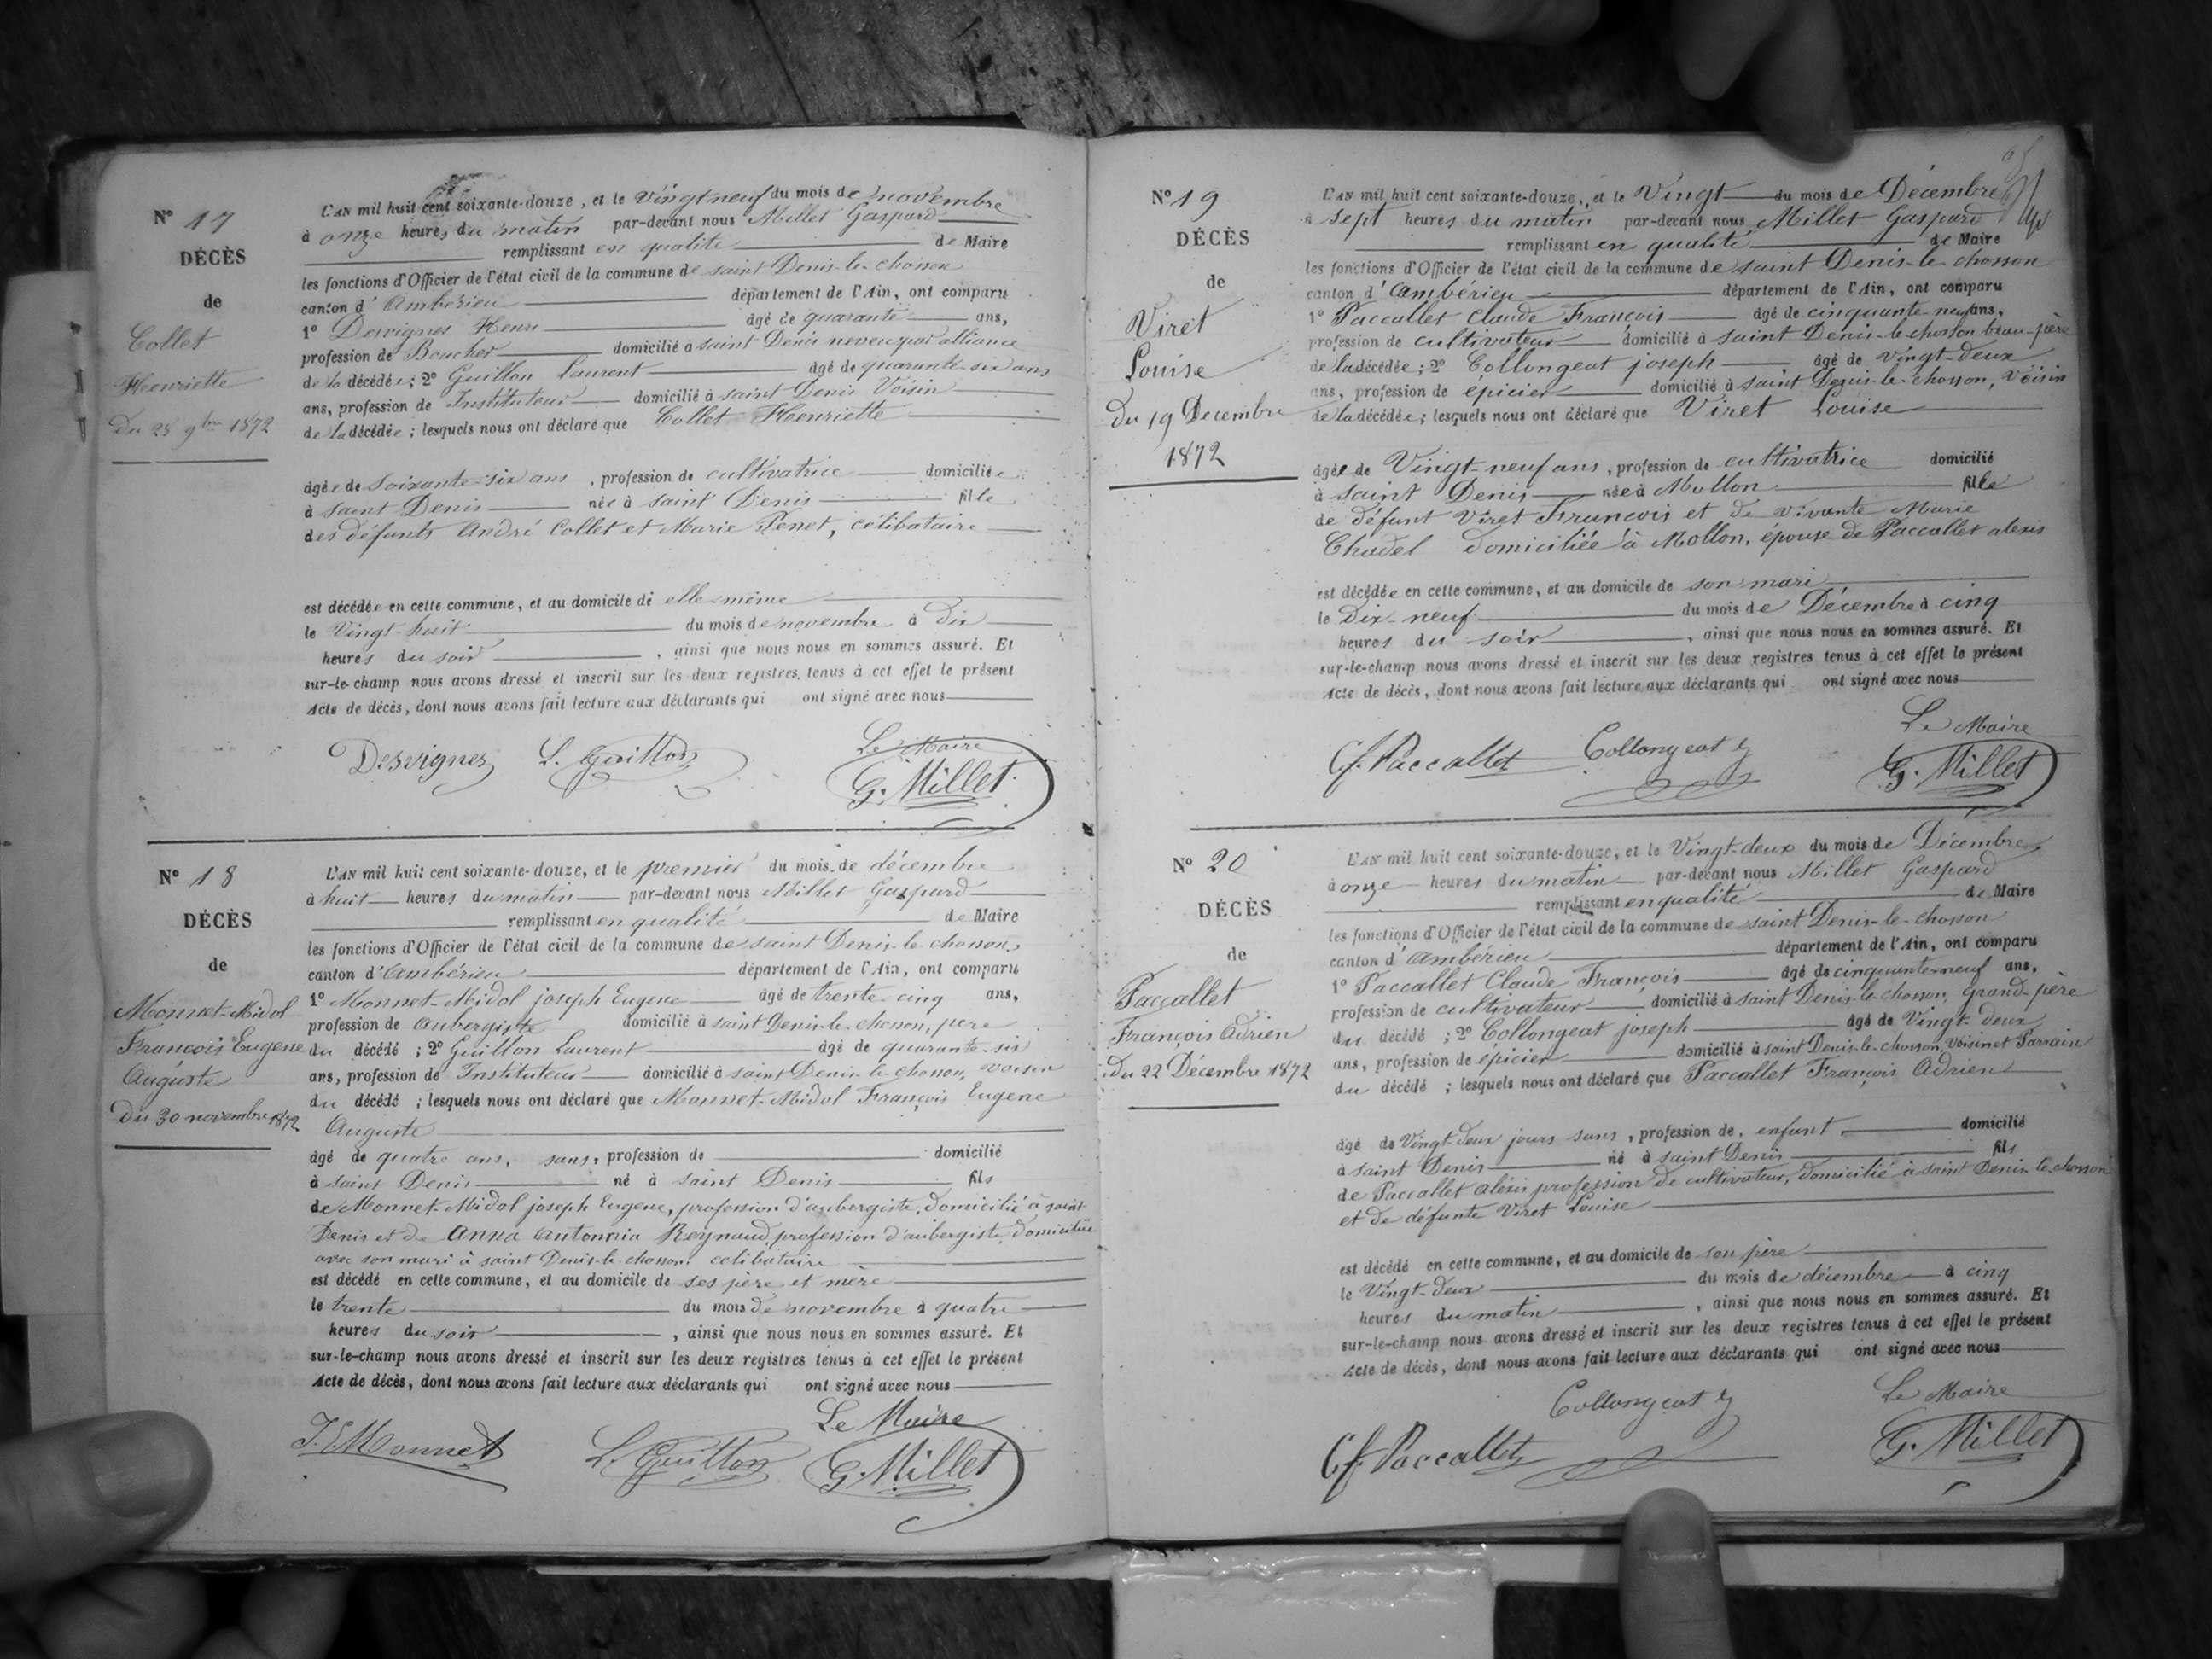 N° 17
DÉCÈS
de
Collet
Henriette
Du 28 9bre 1872
L'AN mil huit cent soixante-douze, et le Vingt neuf du mois de novembre
à onze heures du matin par-devant nous Millet Gaspard
remplissant en qualité de Maire
les fonctions d'Officier de l'état civil de la commune de saint Denis-le-chosson
canton d'Ambérieu département de l'Ain, ont comparu
1° Desvignes Henri âgé de quarante ans,
profession de Boucher domicilié à saint Denis neveu par alliance
de la décédée; 2° Guillon Laurent âgé de quarante-six ans
ans, profession de Instituteur domicilié à saint Denis Voisin
de la décédée; lesquels nous ont déclaré que Collet Henriette
âgée de Soixante-six ans, profession de cultivatrice domiciliée
à saint Denis née à saint Denis fille
des défunts André Collet et Marie Penet, célibataire
est décédée en cette commune, et au domicile de elle-même
le Vingt-huit du mois de novembre à dix
heures du soir, ainsi que nous nous en sommes assuré. Et
sur-le-champ nous avons dressé et inscrit sur les deux registres tenus à cet effet le présent
Acte de décès, dont nous avons fait lecture aux déclarants qui ont signé avec nous
Desvignes L. Guillon Le Maire
G. Millet
N° 18
DÉCÈS
de
Monnet-Midol
François Eugene
Auguste
Du 30 novembre 1872
L'AN mil huit cent soixante-douze, et le premier du mois de décembre
à huit heures du matin par-devant nous Millet Gaspard
remplissant en qualité de Maire
les fonctions d'Officier de l'état civil de la commune de saint Denis-le-chosson
canton d'Ambérieu département de l'Ain, ont comparu
1° Monnet-Midol joseph Eugene âgé de trente-cinq ans,
profession de Aubergiste domicilié à saint Denis-le-chosson, père
du décédé; 2° Guillon Laurent âgé de quarante-six
ans, profession de Instituteur domicilié à saint Denis-le-chosson, voisin
du décédé; lesquels nous ont déclaré que Monnet-Midol François Eugene
Auguste
âgé de quatre ans, sans, profession de domicilié
à saint Denis né à saint Denis fils
de Monnet-Midol joseph Eugene, profession d'aubergiste, domicilié à saint
Denis et de Anna Antonnia Reynaud, profession d'aubergiste, domiciliée
avec son mari à saint Denis-le-chosson. célibataire
est décédé en cette commune, et au domicile de ses père et mère
le trente du mois de novembre à quatre
heures du soir, ainsi que nous nous en sommes assuré. Et
sur-le-champ nous avons dressé et inscrit sur les deux registres tenus à cet effet le présent
Acte de décès, dont nous avons fait lecture aux déclarants qui ont signé avec nous
J. E. Monnet L. Guillon Le Maire
G. Millet
N° 19
DÉCÈS
de
Viret
Louise
Du 19 Decembre
1872
L'AN mil huit cent soixante-douze, et le Vingt du mois de Décembre
à sept heures du matin par-devant nous Millet Gaspard
remplissant en qualité de Maire
les fonctions d'Officier de l'état civil de la commune de saint Denis-le-chosson
canton d'Ambérieu département de l'Ain, ont comparu
1° Paccallet Claude François âgé de cinquante neuf ans,
profession de cultivateur domicilié à saint Denis-le-chosson beau-père
de la décédée; 2° Collongeat joseph âgé de Vingt-deux
ans, profession de épicier domicilié à saint Denis-le-chosson, Voisin
de la décédée; lesquels nous ont déclaré que Viret Louise
âgée de Vingt-neuf ans, profession de cultivatrice domicilié
à saint Denis née à Mollon fille
de défunt Viret François et de vivante Marie
Chadel domiciliée à Mollon, épouse de Paccallet alexis
est décédée en cette commune, et au domicile de son mari
le Dix-neuf du mois de Décembre à cinq
heures du soir, ainsi que nous nous en sommes assuré. Et
sur-le-champ nous avons dressé et inscrit sur les deux registres tenus à cet effet le présent
Acte de décès, dont nous avons fait lecture aux déclarants qui ont signé avec nous
C. f. Paccallet Collongeat j Le Maire
G. Millet
N° 20
DÉCÈS
de
Paccallet
François Adrien
Du 22 Décembre 1872
L'AN mil huit cent soixante-douze, et le Vingt-deux du mois de Décembre
à onze heures du matin par-devant nous Millet Gaspard
remplissant en qualité de Maire
les fonctions d'Officier de l'état civil de la commune de saint Denis-le-chosson
canton d'Ambérieu département de l'Ain, ont comparu
1° Paccallet Claude François âgé de cinquante neuf ans,
profession de cultivateur domicilié à saint Denis-le-chosson, Grand-père
du décédé; 2° Collongeat joseph âgé de Vingt-deux
ans, profession de épicier domicilié à saint Denis-le-chosson, Voisin et Parrain
du décédé; lesquels nous ont déclaré que Paccallet François Adrien
âgé de Vingt-deux jours sans, profession de, enfant domicilié
à saint Denis né à saint Denis fils
de Paccallet Alexis profession de cultivateur, domicilié à saint Denis-le-chosson
et de défunte Viret Louise
est décédé en cette commune, et au domicile de son père
le Vingt-deux du mois de décembre à cinq
heures du matin, ainsi que nous nous en sommes assuré. Et
sur-le-champ nous avons dressé et inscrit sur les deux registres tenus à cet effet le présent
Acte de décès, dont nous avons fait lecture aux déclarants qui ont signé avec nous
C. f. Paccallet Collongeat j Le Maire
G. Millet